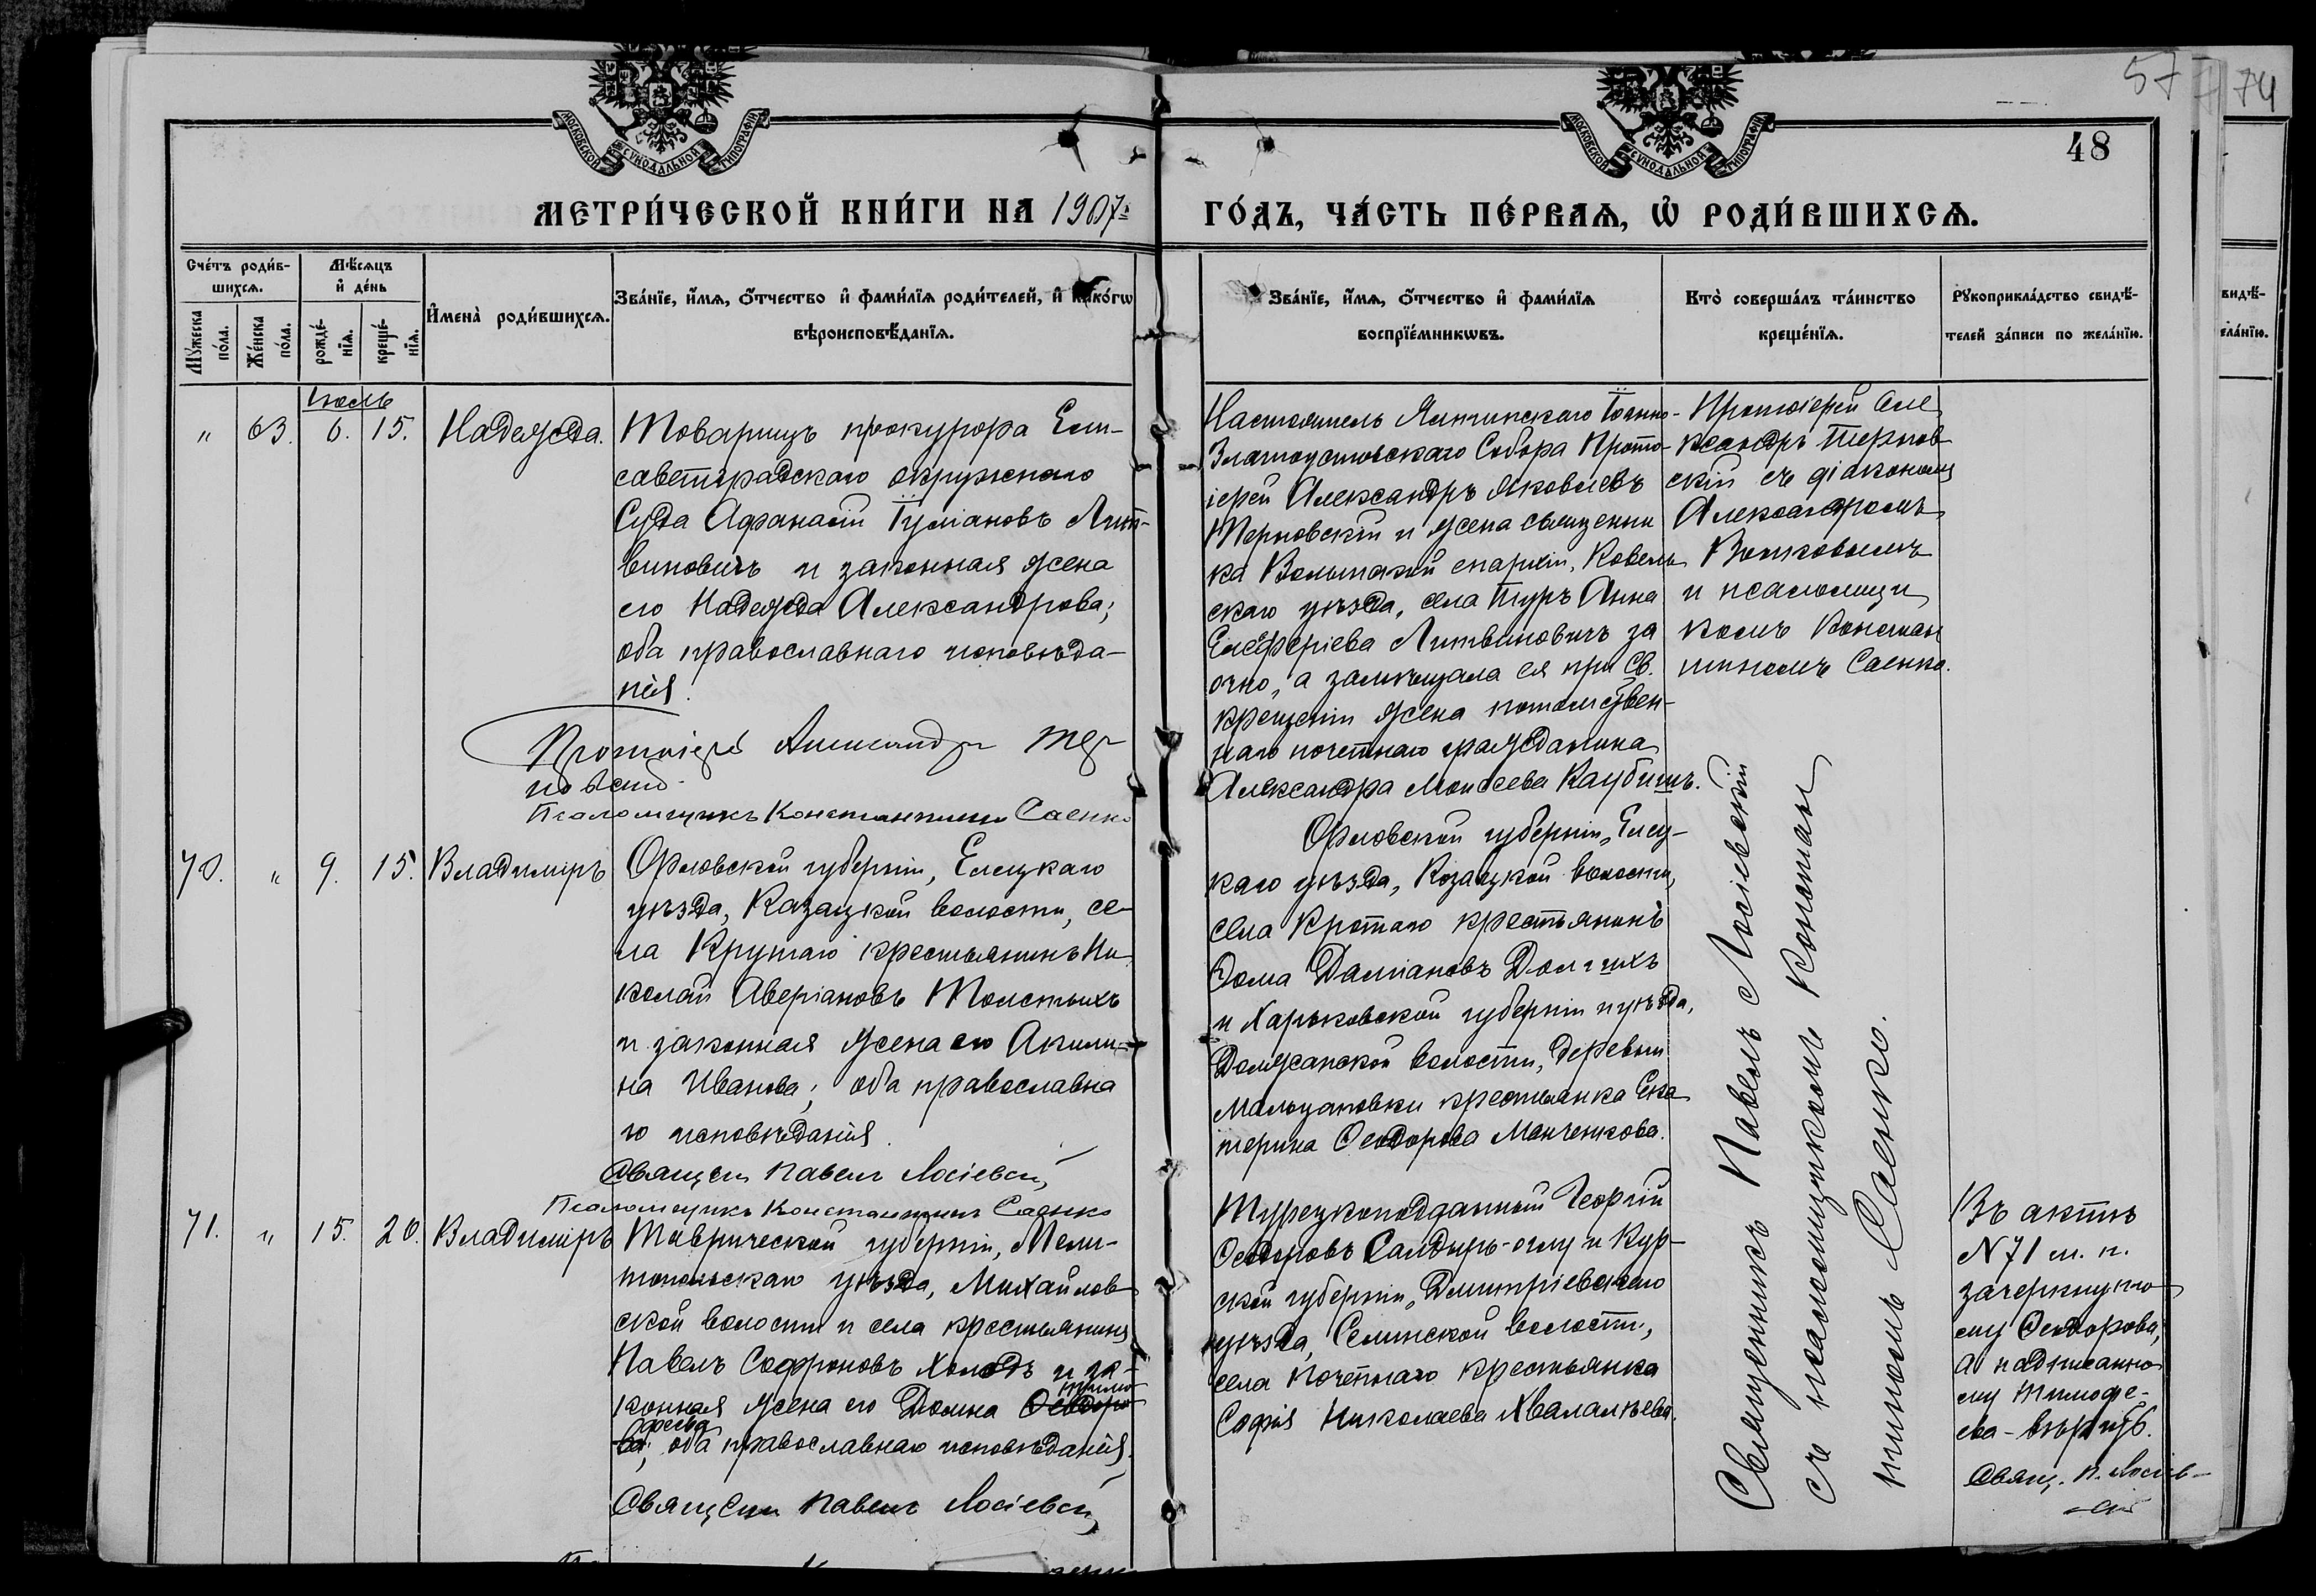 57
74
48
МОСКОВСКОЙ СУНОДАЛЬНОЙ ТИПОГРАФІИ
МОСКОВСКОЙ СУНОДАЛЬНОЙ ТИПОГРАФІИ
МЕТРИ́ЧЕСКОЙ КНИ́ГИ НА 1907 ГО́ДЪ, ЧА́СТЬ ПЕ́РВАЯ, Ѡ РОДИ́ВШИХСЯ.
Сче́тъ роди́в-
шихся.
Мѣ́сяцъ
и де́нь
Му́жеска по́ла.
Же́нска по́ла.
рожде́-
нія.
креще́-
нія.
Имена̀ роди́вшихся.
Зва́нїе, и́мя, о́тчество и фами́лїя роди́телей, и како́гѡ
вѣроисповѣ́данїя.
Зва́нїе, и́мя, о́тчество и фами́лїя
воспрїе́мникѡвъ.
Кто̀ соверша́лъ та́инство
креще́нїя.
Рукоприкла́дство свидѣ́-
телей за́писи по жела́нїю.
видѣ́-
ела́нїю.
Іюль
" 63. 6. 15. Надежда.
Товарищъ прокурора Ели-
саветградскаго окружнаго
Суда Афанасій Іуліановъ Лит-
виновичъ и законная жена
его Надежда Александрова;
оба православнаго исповѣда-
нія.
Протоіерей Александръ Тер-
новскій
Псаломщикъ Константинъ Саенко
Настоятель Ялтинскаго Іоанно-
Златоустовскаго Собора Прото-
іерей Александръ Яковлевъ
Терновскій и жена священни
ка Волынской епархіи, Ковель
скаго уѣзда, села Туръ Анна
Елефѳеріева Литвиновичъ за
очно, а замѣщала ея при Св.
крещеніи жена потомствен-
наго почетнаго гражданина
Александра Моисеева
Протоіерей Але
ксандръ Тернов
скій съ діакономъ
Александромъ
и псаломщи
комъ Констан
тиномъ Саенко.
70. " 9. 15. Владиміръ
Орловской губерніи, Елецкаго
уѣзда, Казацкой волости, се-
ла Крутаго крестьянинъ Ни
колай Аверіановъ Толстыхъ
и законная жена его Акили-
на Иванова; оба православна
го исповѣданія.
Священ. Павелъ Лосіевскій
Псаломщикъ Константинъ Саенко
Орловской губерніи, Елец-
каго уѣзда, Козацкой волости,
села Кротаго крестьянинъ
Ѳома Даміановъ Долгихъ
и Харьковской губерніи и уѣзда,
Должанской волости, деревни
крестьянка Ека
терина Ѳеодорова Манченкова.
Священникъ Павелъ Лосіевскій
съ псаломщикомъ Констан
тиномъ Саенко.
71. " 15. 20. Владиміръ
Таврической губерніи, Мели-
топольскаго уѣзда, Михайлов
ской волости и села крестьянинъ
Павелъ Софроновъ Холодъ и за-
конная жена его Домна Ѳеодоро Тимо
ва феева; оба православнаго исповѣданія.
Священ. Павелъ Лосіевскій
Турецкоподданный Георгій
Ѳеодоровъ Салдиръ-оглу и Кур-
ской губерніи, Дмитріевскаго
уѣзда, Селинской волости,
села Почепнаго крестьянка
Софія Николаева
Въ актѣ
N 71 м. п.
зачеркнуто
му Ѳеодорова,
а надписанно
му Тимофе-
ева - вѣрить.
Свящ. П. Лосіев-
скій